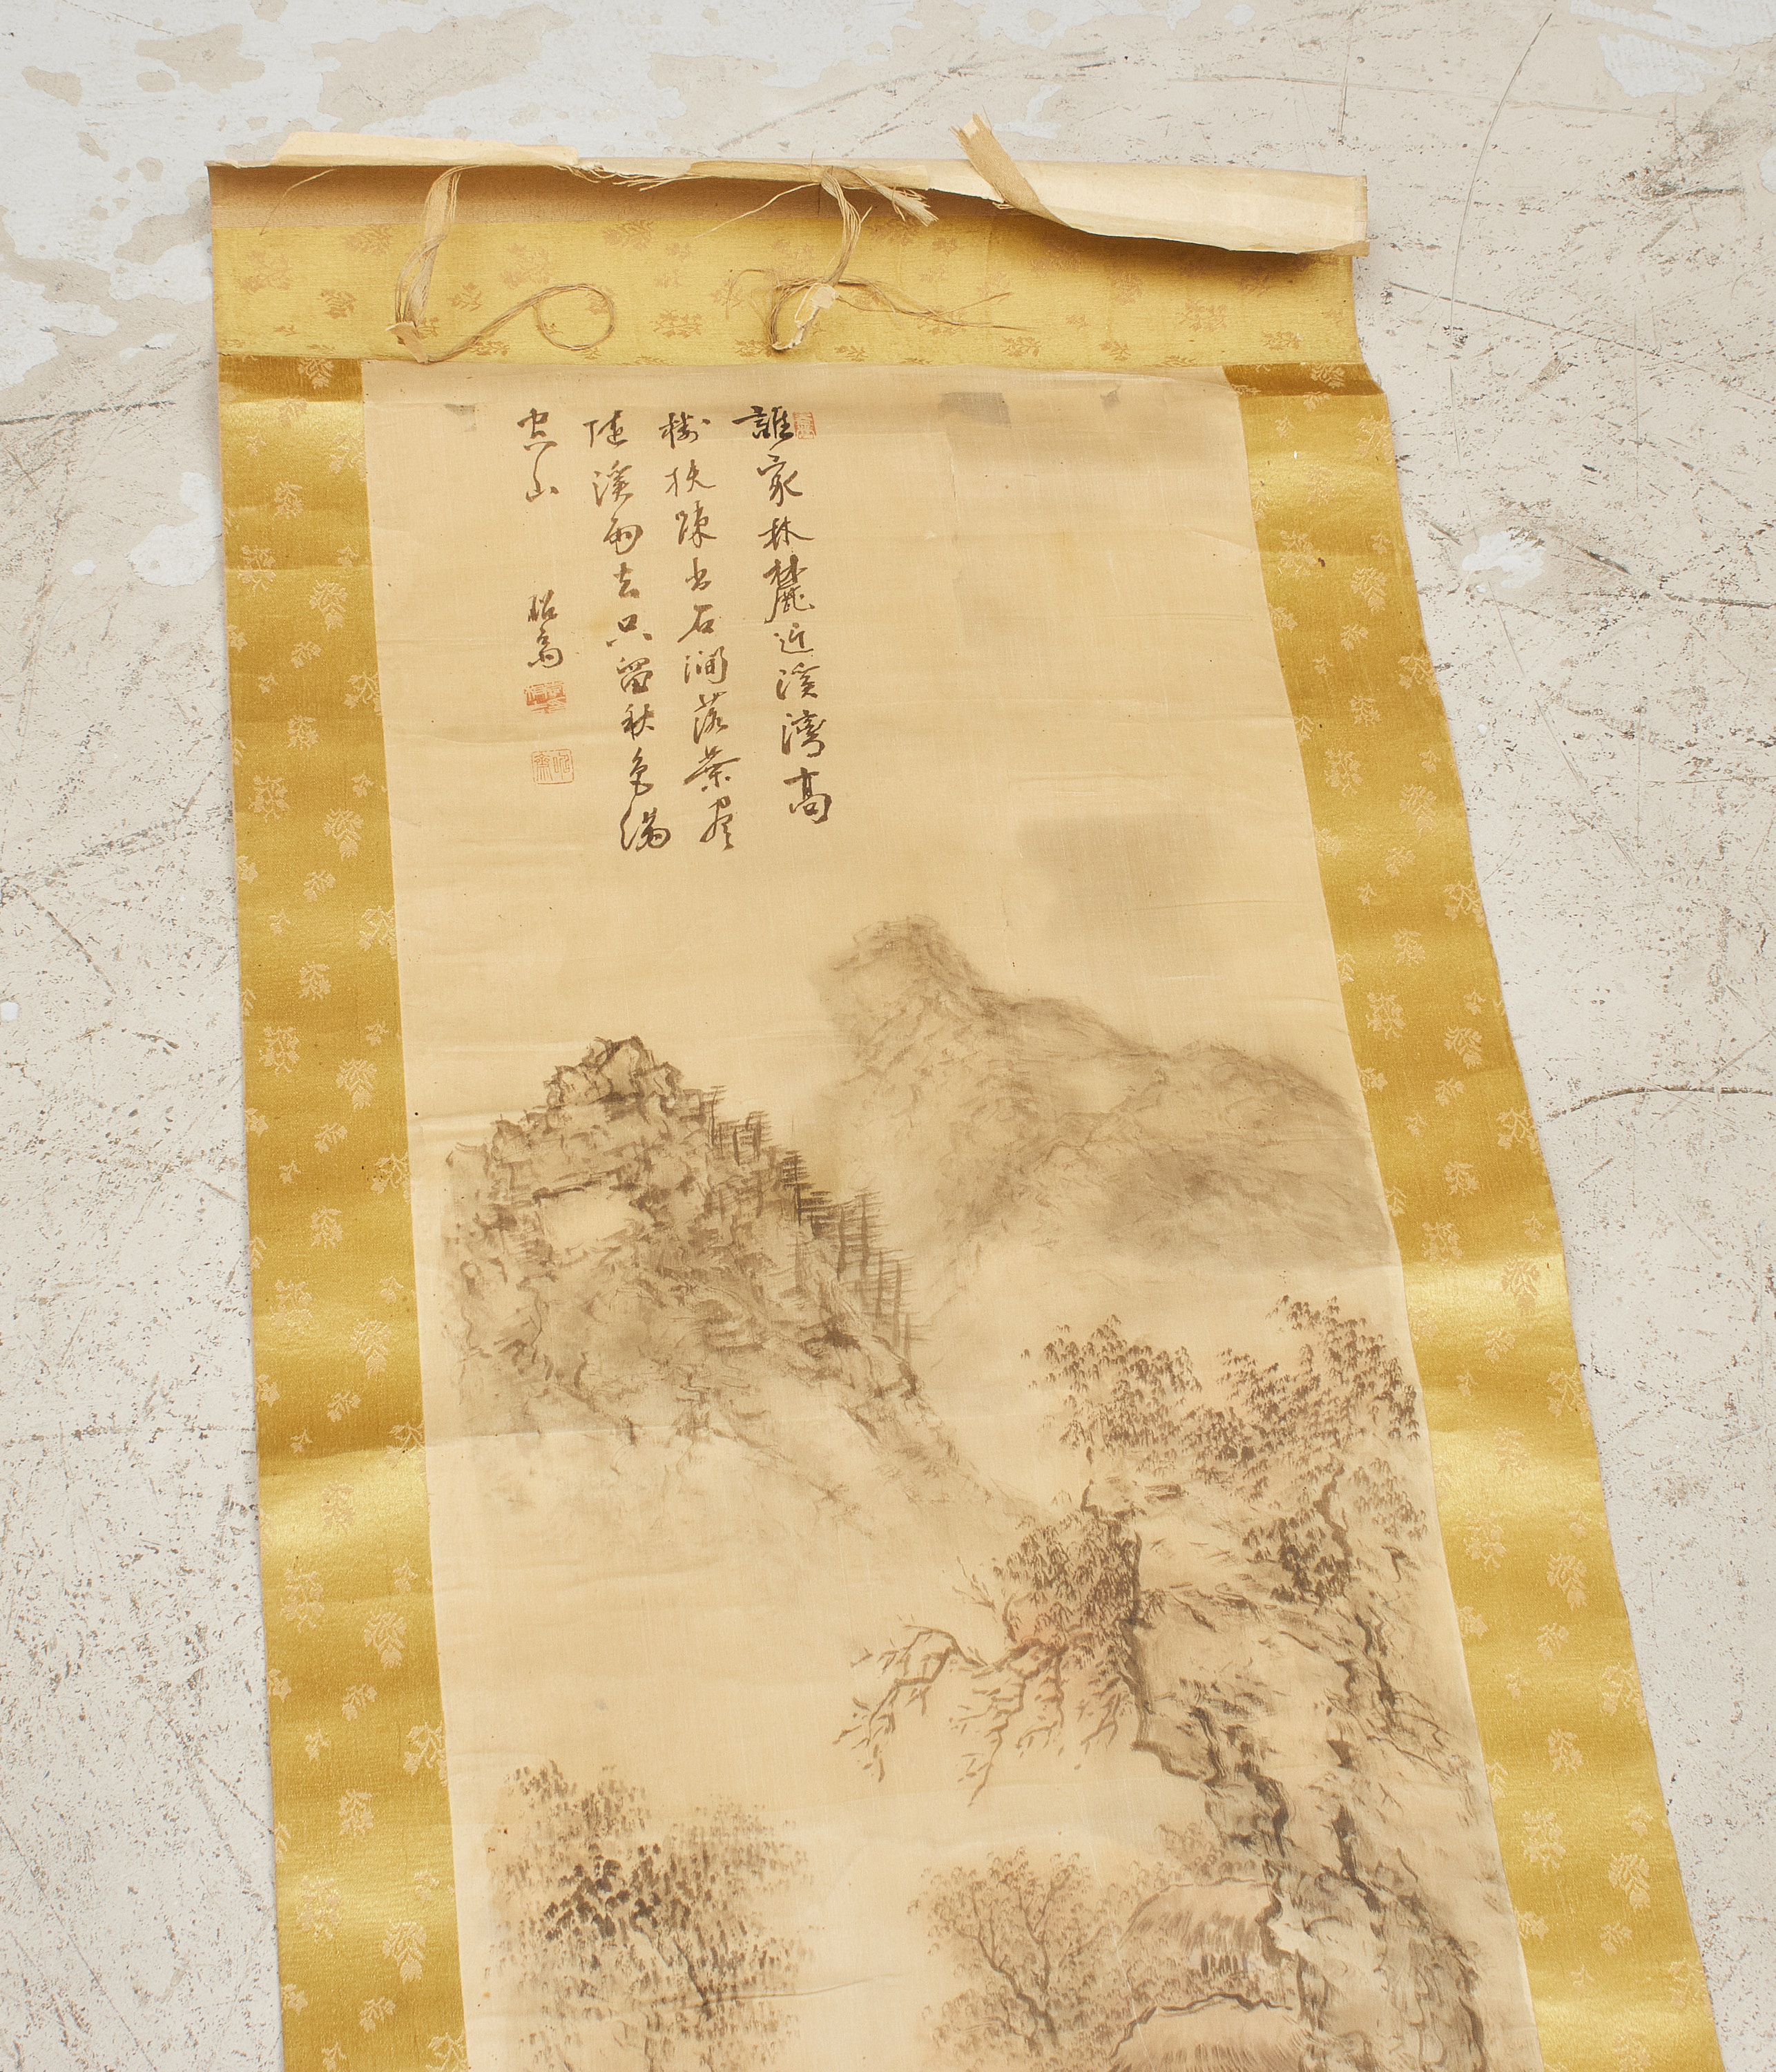 誰家林麓近溪灣高
樹扶踈出石澗落葉盡
随溪雨去只留秋色滿
空山